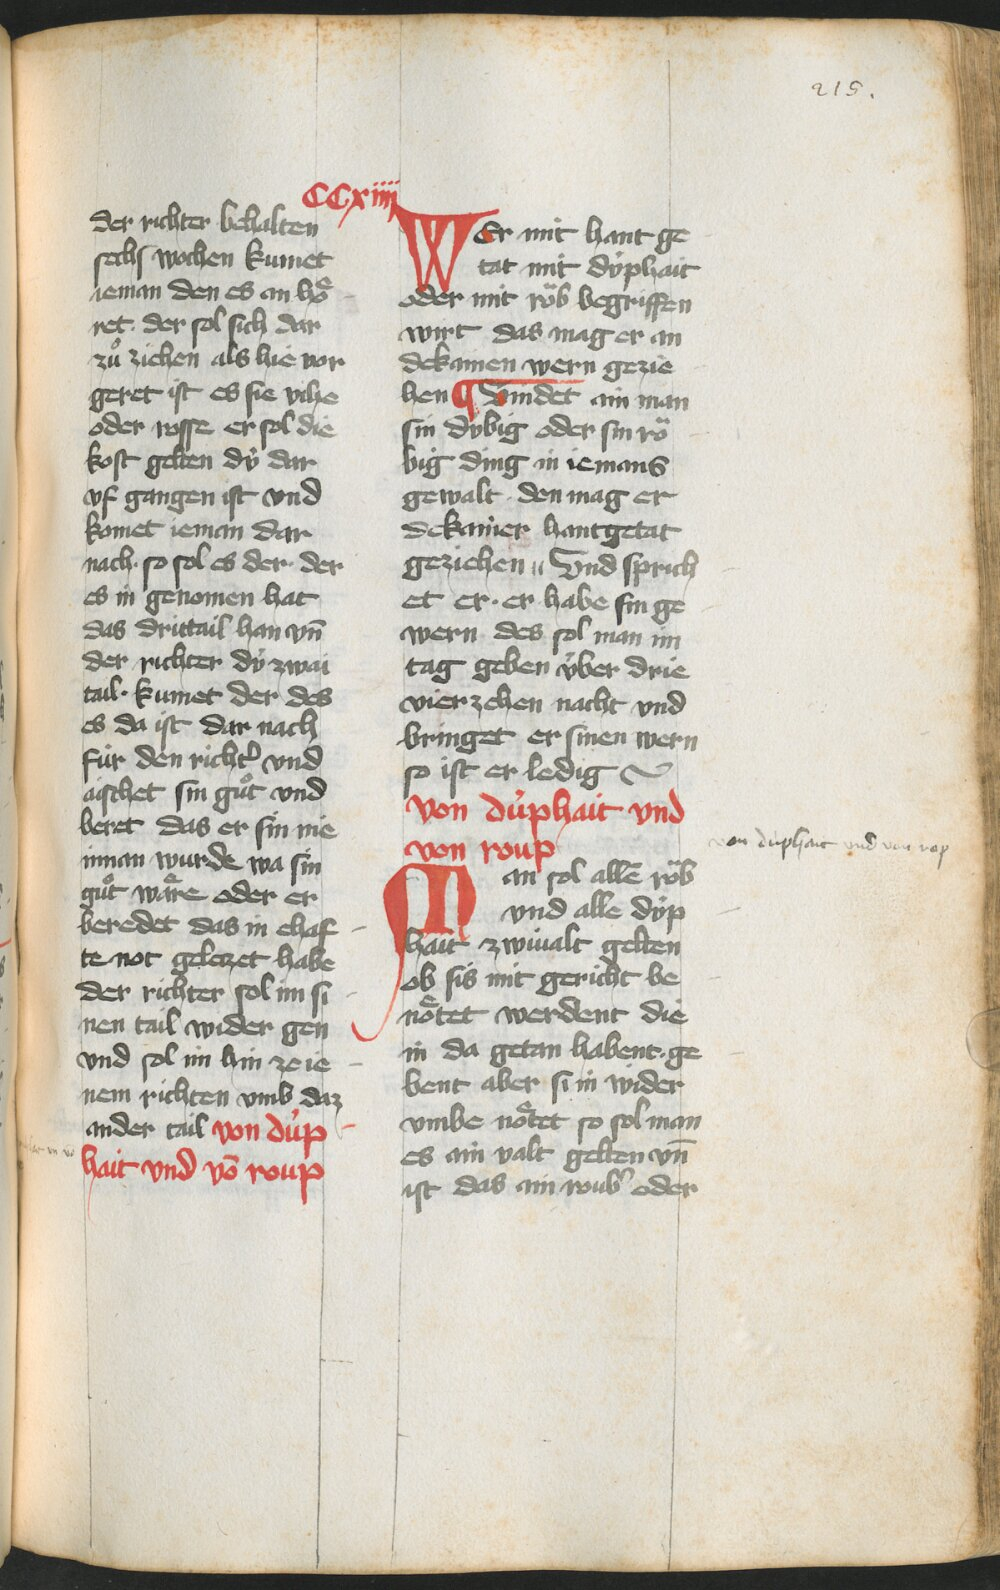 215.
CCxiiii
der richter behalten
sechs wochen kumet
ieman den es an hoͤ
ret· der sol sich dar
zuͦ ziehen als hie vor
geret ist es sie vihe
oder rosse er sol die
kost gelten dy̍ dar
vf gangen ist vnd
komet ieman dar
nach· so sol es der· der
es in genomen hat
das drittail han vn̄
der richter dy̍ zwai
tail· kumet der des
es da ist dar nach
fúr den richt̕ vnd
aischet sin guͦt vnd
beret das er sin nie
innan wurde wa sin
guͦt waͤre oder er
beredet das in ehaf
te not geleczet habe
der richter sol im si
nen tail wider gen
vnd sol im hin ze ie
nem richten vmb daz
ander tail von du̍p
hait vnd vō roup
WEr mit hant ge
tat mit dy̍phait
oder mit roͮb begriffen
wirt das mag er an
dekainen wern gezie
hen ¶ Vindet ain man
sin dy̍big oder sin roͮ
big ding in iemans
gewalt· den mag er
dekainer hantgetat
geziehen ıı Vnd sprich
et er· er habe sin ge
wern des sol man im
tag geben y̍ber drie
vierzehen nacht vnd
bringet er sinen wern
so ist er ledig
von du̍phait vnd
von roup
von duphait vnd von rop
Man sol alle roͮb
vnd alle dy̍p
hait zwiualt gelten
ob sis mit gericht be
noͤtet werdent die
in da getan habent· ge
bent aber si in wider
vmbe noͤtet so sol man
es ain valt gelten vn̄
ist das ain roub̕ oder